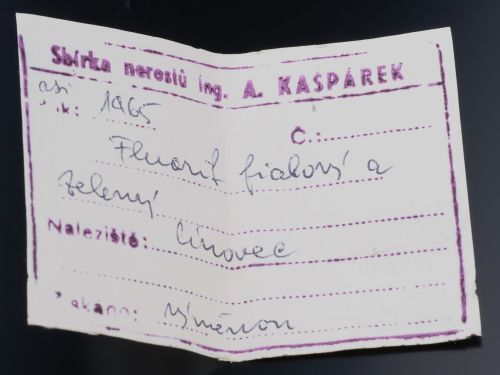 Sbírka nerostů ing. A. KASPÁREK
asi
Rok: 1965
Č.:
Fluorit fialový a
zelený
Naleziště: Cínovec
Získáno: výměnou